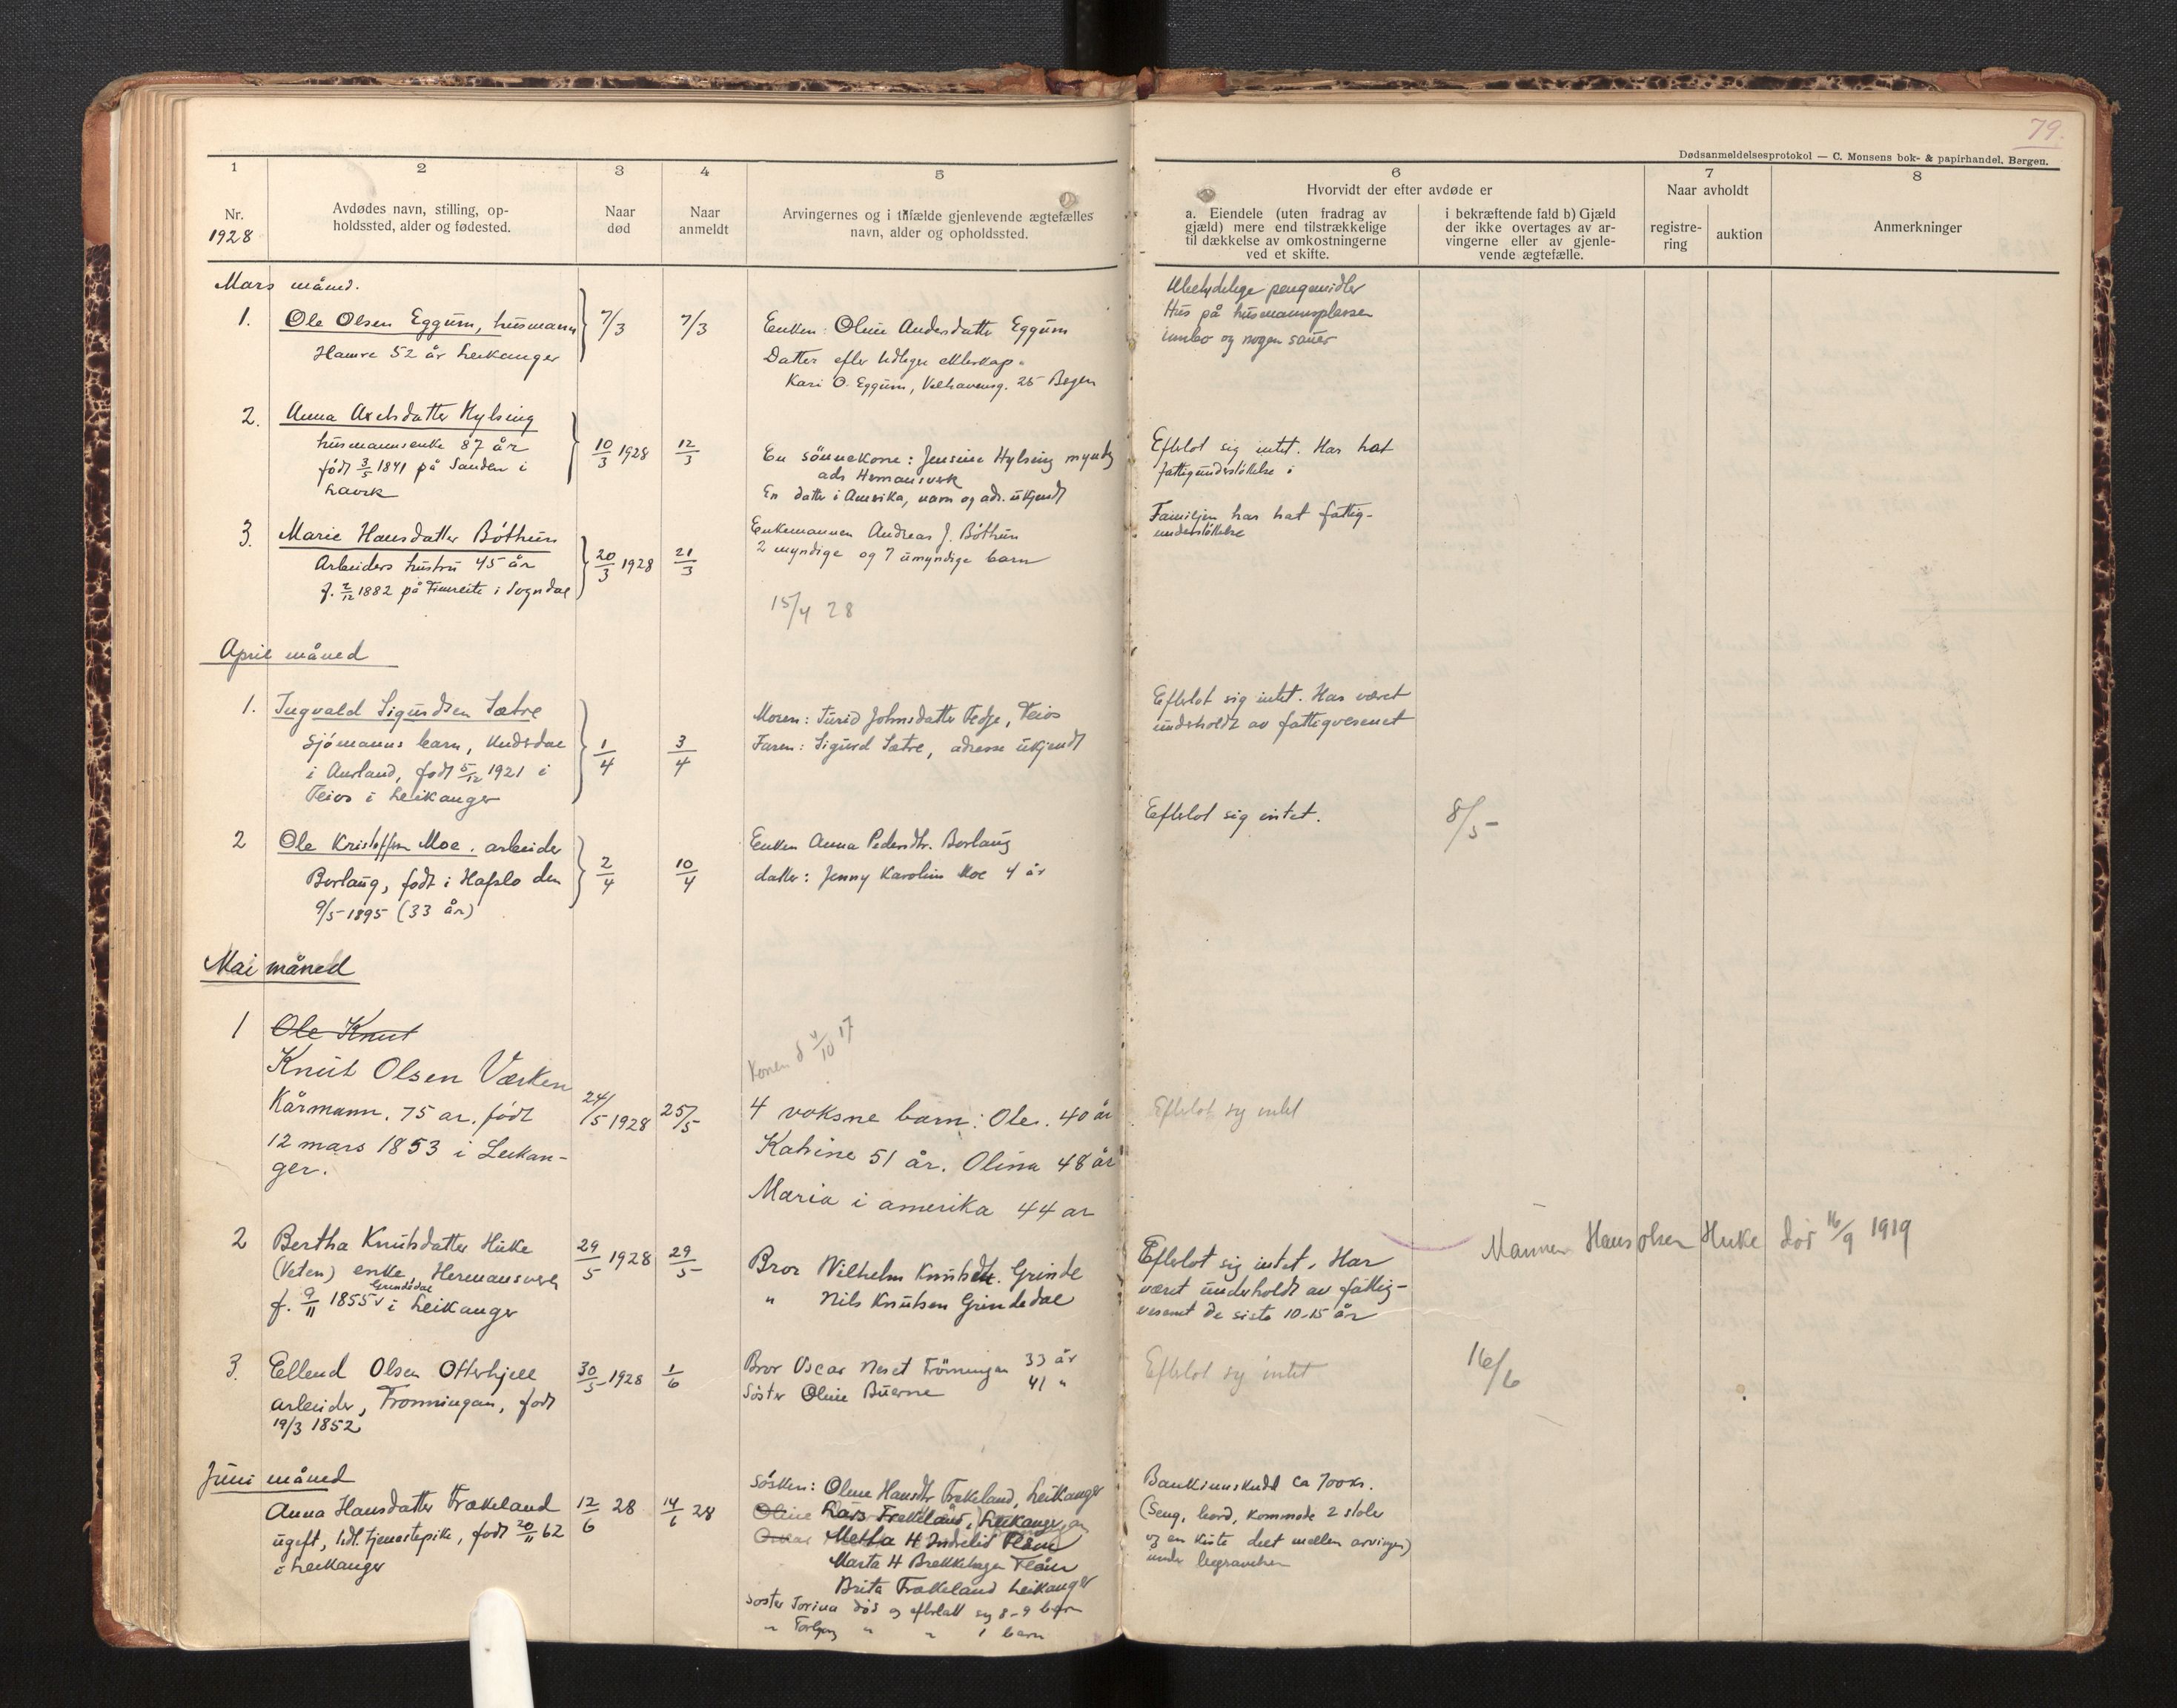 79.
Dødsanmeldelsesprotokol — C. Monsens bok- & papirhandel, Bergen.
1 2 3 4 5 6 7 8
Nr.
1928
Avdødes navn, stilling, op-
holdssted, alder og fødested.
Naar
død
Naar
anmeldt
Arvingernes og i tilfælde gjenlevende ægtefælles
navn, alder og opholdssted.
Hvorvidt der efter avdøde er
a. Eiendele (uten fradrag av
gjæld) mere end tilstrækkelige
til dækkelse av omkostningerne
ved et skifte.
i bekræftende fald b) Gjæld
der ikke overtages av ar-
vingerne eller av gjenle-
vende ægtefælle.
Naar avholdt
registre-
ring
auktion
Anmerkninger
Mars måned.
1. Ole Olsen Eggum, husmann
Hamre 52 år Leikanger
7/3
7/3
Enken: Oline Andersdatter Eggum
Datter efter tidligere ekteskap.
Kari O. Eggum, Welhavensg. 25 Bergen
Ubetydelige pengemidler
Hus på husmannsplassen
innbo og nogen sauer
2. Anna Axelsdatter Nylsing
husmannsenke 87 år
født 3/5 1841 på Sanden i
Lavik
10/3 1928
12/3
En sönnekone: Jensine Nylsing myndig
ads Hermansverk
En datter i Amerika, navn og adr. ukjendt
Efterlot sig intet. Har hat
fattigunderstöttelse i
3. Marie Hansdatter Böthun
Arbeiders hustru 45 år
f. 2/12 1882 på Fimreite i Sogndal
20/3 1928
21/3
Enkemannen Andreas J. Böthun
2 myndige og 7 umyndige barn
15/4 28
Familjen har hat fattig-
understöttelse
April måned
1. Ingvald Sigurdsen Sætre
Sjömanns barn, Undedal
i Aurland, født 5/12 1921 i
Feios i Leikanger
1/4
3/4
Moren: Turid Johnsdatter Fedje, Feios
Faren: Sigurd Sætre, adresse ukjendt
Efterlot sig intet. Har været
underholdt av fattigvesenet
2 Ole Kristoffersen Moe. arbeider
Borlaug, født i Hafslo den
9/5 1895 (33 år)
2/4
10/4
Enken Anna Pedersdtr. Borlaug
datter: Jenny Karoline Moe 4 år
Efterlot sig intet.
8/5
Mai måned
1 Ole Knut
Knut Olsen Værken
Kårmann. 75 ar. født
12 mars 1853 i Leikan-
ger.
24/5 1928
25/5
Konen d 4/10 17
4 voksne barn: Ole. 40 år
Katrine 51 år. Olina 48 år
Maria i amerika 44 ar
Efterlot sig intet
2 Bertha Knutsdatter Huke
(Veten) enke, Hermansverk
Grindedal
f. 9/11 1855 i Leikanger
29/5 1928
29/5
Bror Wilhelm Knutsen. Grinde
" Nils Knutsen Grindedal
Efterlot sig intet. Har
været underholdt av fattig-
vesenet de siste 10-15 år
Mannen Hans Olsen Huke död 16/9 1919
3. Ellend Olsen Otterhjell
arbeider, Fronningen, født
19/3 1852
30/5 1928
1/6
Bror Oscar Neset Frönningen 33 år
Söster Oline Buerne 41 "
Efterlot sig intet
16/6
Juni måned
Anna Hansdatter Frækeland
ugift, tidl. tjenestepike, født 20/11 62
i Leikanger
12/6 28
14/6 28
Sösken: Oline Hansdtr Frækeland, Leikanger
Oline Lars Frækeland, Leikanger
Oscar Metha H Indrelid Flåm
Marta H Brekkhagen Flåm
Brita Frækeland Leikanger
Söster Torina död og efterlatt sig 8-9 barn
" " " 1 barn
Bankinnskudd ca 700 kr.
(Seng, bord, kommode 2 stoler
og en kiste delt mellem arvinger)
under begravelsen